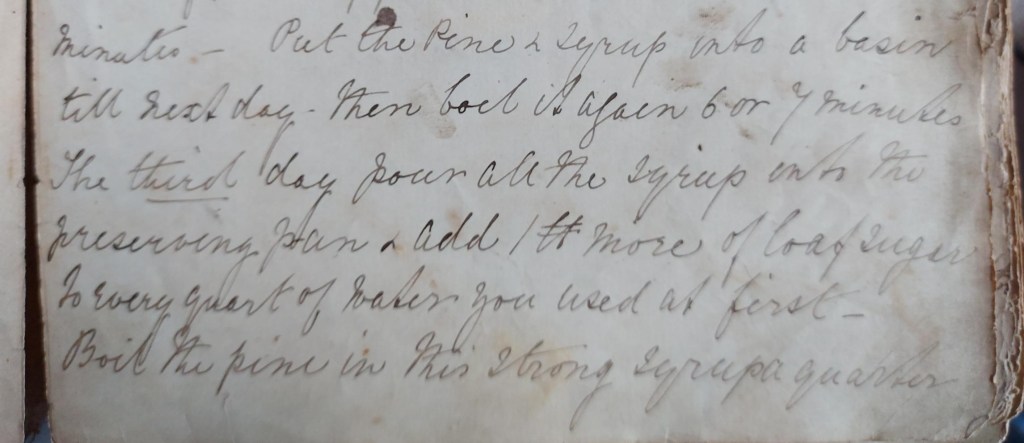 minutes – Put the Pine & Syrup into a basin
till next day – then boil it again 6 or 7 minutes
The third day pour all the syrup into the
preserving pan & add 1 lb more of loaf sugar
to every quart of water you used at first –
Boil the pine in this strong syrup a quarter